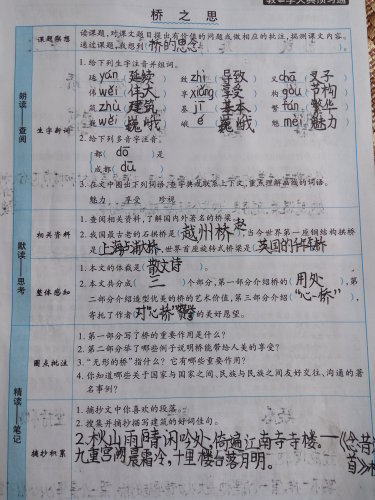 教与学大典预习通
桥之思
课题猜想
读课题,对课文题目提出有价值的问题或做相应的批注,猜测课文内容。
通过课题,我想到(桥的思念)
朗读——查阅
生字新词
1. 给下列生字注音并组词。
延 yán 延续 致 zhì 导致 叉 chā 叉子
伟 wěi 伟大 享 xiǎng 享受 构 gòu 节构
筑 zhù 建筑 基 jī 基本 繁 fán 繁华
巍 wēi 巍峨 峨 é 巍峨 魅 mèi 魅力
2. 给下列多音字注音。
都( dōu )是
成都( dū )
3. 在文中圈出下列词语,查字典或联系上下文,重点理解画线的词语。
魅力 享受 珍视
默读——思考
相关资料
1. 查阅相关资料,了解国内外著名的桥梁。
2. 我国最古老的石拱桥是(赵州桥),当今世界第一座钢结构拱桥
是(上海卢浦大桥),世界首座旋转式桥梁是(英国的千年桥
整体感知
1. 本文的体裁是(散文诗)
2. 本文共分成(三)个部分,第一部分介绍桥的(用处),第
二部分介绍造型优美的桥的艺术价值,第三部分介绍(“心桥”),
寄托了作者对“心桥”的美好愿望。
精读——笔记
圈点批注
1. 第一部分写了桥的重要作用是什么?
2. 第二部分举了哪些例子说明桥能带给人美的享受?
3. “无形的桥”指什么?它有哪些重要作用?
4. 你知道哪些关于国家与国家之间、民族与民族之间友好交往、沟通的著
名事例?
摘抄积累
1. 摘抄文中你喜欢的段落。
2. 搜集并摘抄描写建筑的好词佳句。
2.秋山雨晴闲吟处,倚遍江南寺寺楼。——《念昔
九重宫阙晨霜冷,十里楼台落月明。